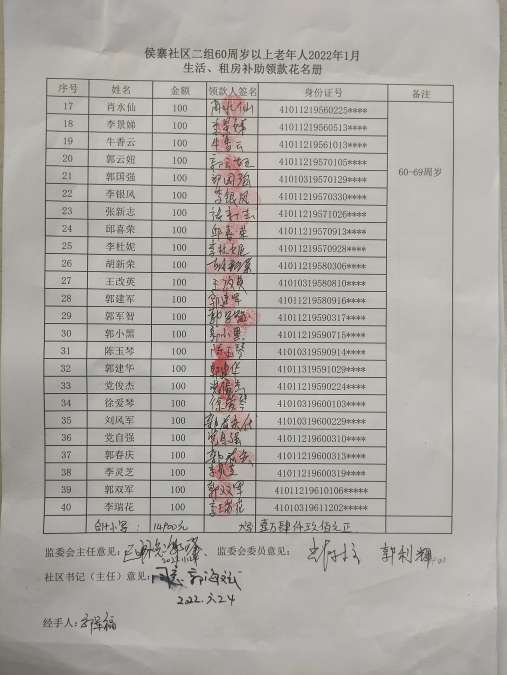 侯寨社区二组60周岁以上老年人2022年1月
生活、租房补助领款花名册
序号 姓名 金额 领款人签名 身份证号 备注
17 肖水仙 100 肖水仙 41011219560225****
18 李景娣 100 李景娣 41011219560513****
19 牛香云 100 牛香云 41011219561013****
20 郭云妞 100 郭云妞 41011219570105**** 60-69周岁
21 郭国强 100 郭国强 41010319570129****
22 李银凤 100 李银凤 41011219570330****
23 张新志 100 张新志 41011219571026****
24 邱喜荣 100 邱喜荣 41011219570913****
25 李杜妮 100 李杜妮 41011219570928****
26 胡新荣 100 胡新荣 41011219580306****
27 王改英 100 王改英 41010319580810****
28 郭建军 100 郭建军 41011219580916****
29 郭军智 100 41011219590317****
30 郭小黑 100 郭小黑 41011219590715****
31 陈玉琴 100 陈玉琴 41010319590914****
32 郭建华 100 郭建华 41011319591029****
33 党俊杰 100 党俊杰 41011219590224****
34 徐爱琴 100 徐爱琴 41010319600103****
35 刘凤军 100 41010319600229****
36 党自强 100 党自强 41011219600310****
37 郭春庆 100 41011219600313****
38 李灵芝 100 李灵芝 41011219600319****
39 郭双军 100 郭双军 41011219610106*****
40 李瑞花 100 李瑞花 41010319611202****
合计小写: 14900元 大写 壹万肆仟玖佰元正
监委会主任意见: 监委会委员意见: 郭利辉
社区书记(主任)意见:
2022.1.24
经手人: